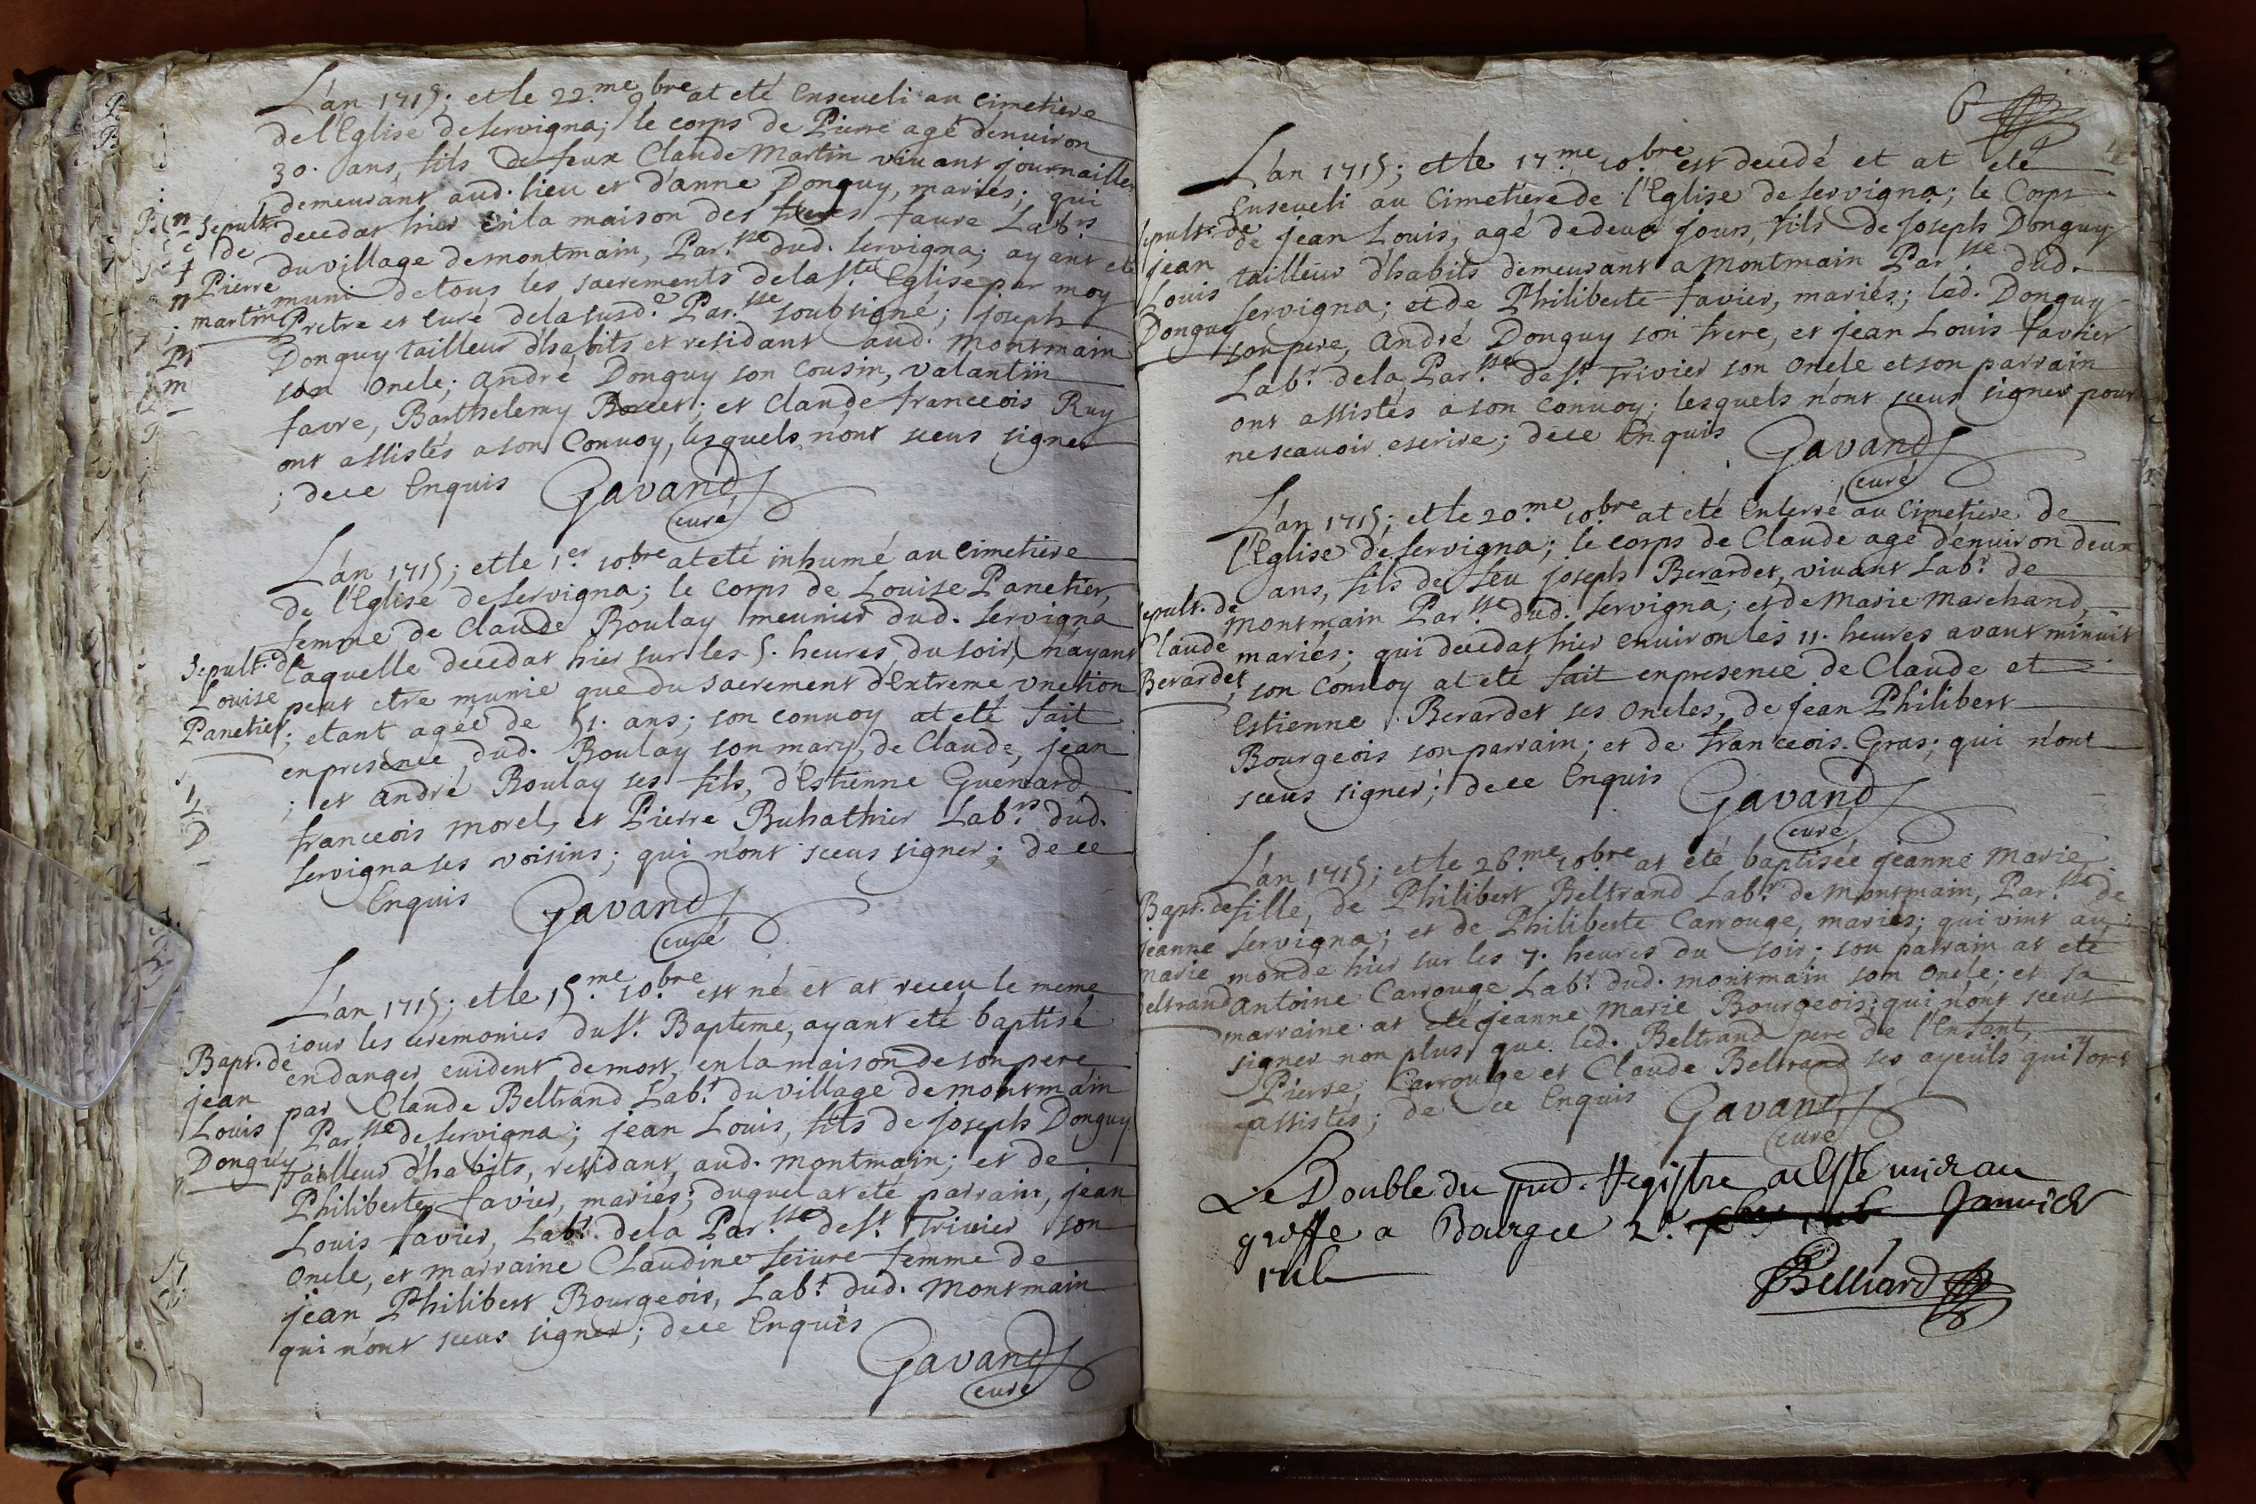 L'an 1715; et le 22.me 9.bre at eté Enseueli au Cimetiere
de l'Eglise de Servigna; le corps de Pierre agé d'enuiron
30. ans, fils de feux Claude Martin viuant journaillier
demeurant aud. lieu et d'anne Donguy, mariés; qui
decedat hier en la maison des freres favre Lab.rs
du village de montmain, Par.sse dud. Servigna; ayant eté
muni de tous les sacrements de la s.te Eglise par moy
Pretre et Curé de la susd.e Par.sse soubsigné; joseph
Donguy tailleur d'habits et residant aud. montmain
son Oncle; andré Donguy son Cousin, valantin
favre, Barthelemy Borcet; et Claude franceois Ruy
ont assistés a son Conuoy, lesquels n'ont sceus signer
; de ce Enquis Gavand
curé
Sepult.
de
Pierre
martin
L'an 1715; et le 1.er 10.bre at eté inhumé au Cimetiere
de l'Eglise de Servigna; le Corps de Louise Panetier,
femme de Claude Boulay meunier dud. Servigna
laquelle decedat hier sur les 5. heures du soir, n'ayant
peut etre munie que du sacrement d'Extreme vnction
; etant agée de 51. ans; son conuoy at eté fait
en presence dud. Boulay son mary, de Claude, jean
; et andré Boulay ses fils, d'Estienne Guenard
franceois morel, et Pierre Buhathier Lab.rs dud.
Servigna ses voisins; qui n'ont sceus signer; de ce
Enquis Gavand
curé
Sepult. de
Louise
Panetier
L'an 1715; et le 15.me 10.bre est né et at receu le meme
iour les ceremonies du s.t Bapteme, ayant eté baptisé
en danger euident de mort, en la maison de son pere
par Claude Beltrand Lab.r du village de montmain
Par.sse de Servigna; jean Louis, fils de joseph Donguy
Tailleur d'habits, residant, aud. montmain; et de
Philiberte favier, mariés; duquel at eté parrain, jean
Louis favier, Lab.r de la Par.sse de s.t Trivier son
Oncle, et marraine Claudine seiure femme de
jean Philibert Bourgeois, Lab.r dud. montmain
qui n'ont sceus signer; de ce Enquis
Gavand
curé
Bapt. de
jean
Louis
Donguy
6
L'an 1715; et le 17.me 10.bre est decedé et at eté
Enseueli au Cimetiere de l'Eglise de Servigna; le Corps
de jean Louis, agé de deux jours, fils de joseph Donguy
tailleur d'habits demeurant a montmain Par.sse dud.
Servigna; et de Philiberte favier, mariés; led. Donguy
son pere, andré Donguy son frere, et jean Louis favier
Lab.r de la Par.sse de s.t Trivier son Oncle et son parrain
ont assistés a son Conuoy; lesquels n'ont sceus signer pour
ne scauoir escrire; de ce Enquis Gavand
curé
Sepult. de
jean
Louis
Donguy
L'an 1715; et le 20.me 10.bre at eté Enterré au Cimetiere de
l'Eglise de Servigna; le corps de Claude agé d'enuiron deux
ans, fils de feu joseph Berardet, viuant Lab.r de
montmain Par.sse dud. Servigna; et de Marie Marchand,
mariés; qui decedat hier enuiron les 11. heures avant minuit
; son conuoy at eté fait en presence de Claude et
Estienne Berardet ses Oncles, de jean Philibert
Bourgeois son parrain; et de franceois Gras; qui n'ont
sceus signer; de ce Enquis Gavand
curé
Sepult. de
Claude
Berardet
L'an 1715; et le 26.me 10.bre at eté baptisée jeanne Marie,
fille, de Philibert Beltrand Lab.r de montmain, Par.sse de
Servigna; et de Philiberte Carrouge, mariés; qui vint au
monde hier sur les 7. heures du soir; son parrain at eté
antoine Carrouge Lab.r dud. montmain son Oncle; et sa
marraine at eté jeanne Marie Bourgeois; qui n'ont sceus
signer non plus que led. Beltrand pere de l'Enfant,
Pierre, Carrouge et Claude Beltrand ses ayeuls qui y ont
assistés; de ce Enquis Gavand
curé
Bapt. de
jeanne
marie
Beltrand
Le Double du pnd. Registre a Esté mis au
greffe a Bourg ce 2.e Januier
1716
Belliard